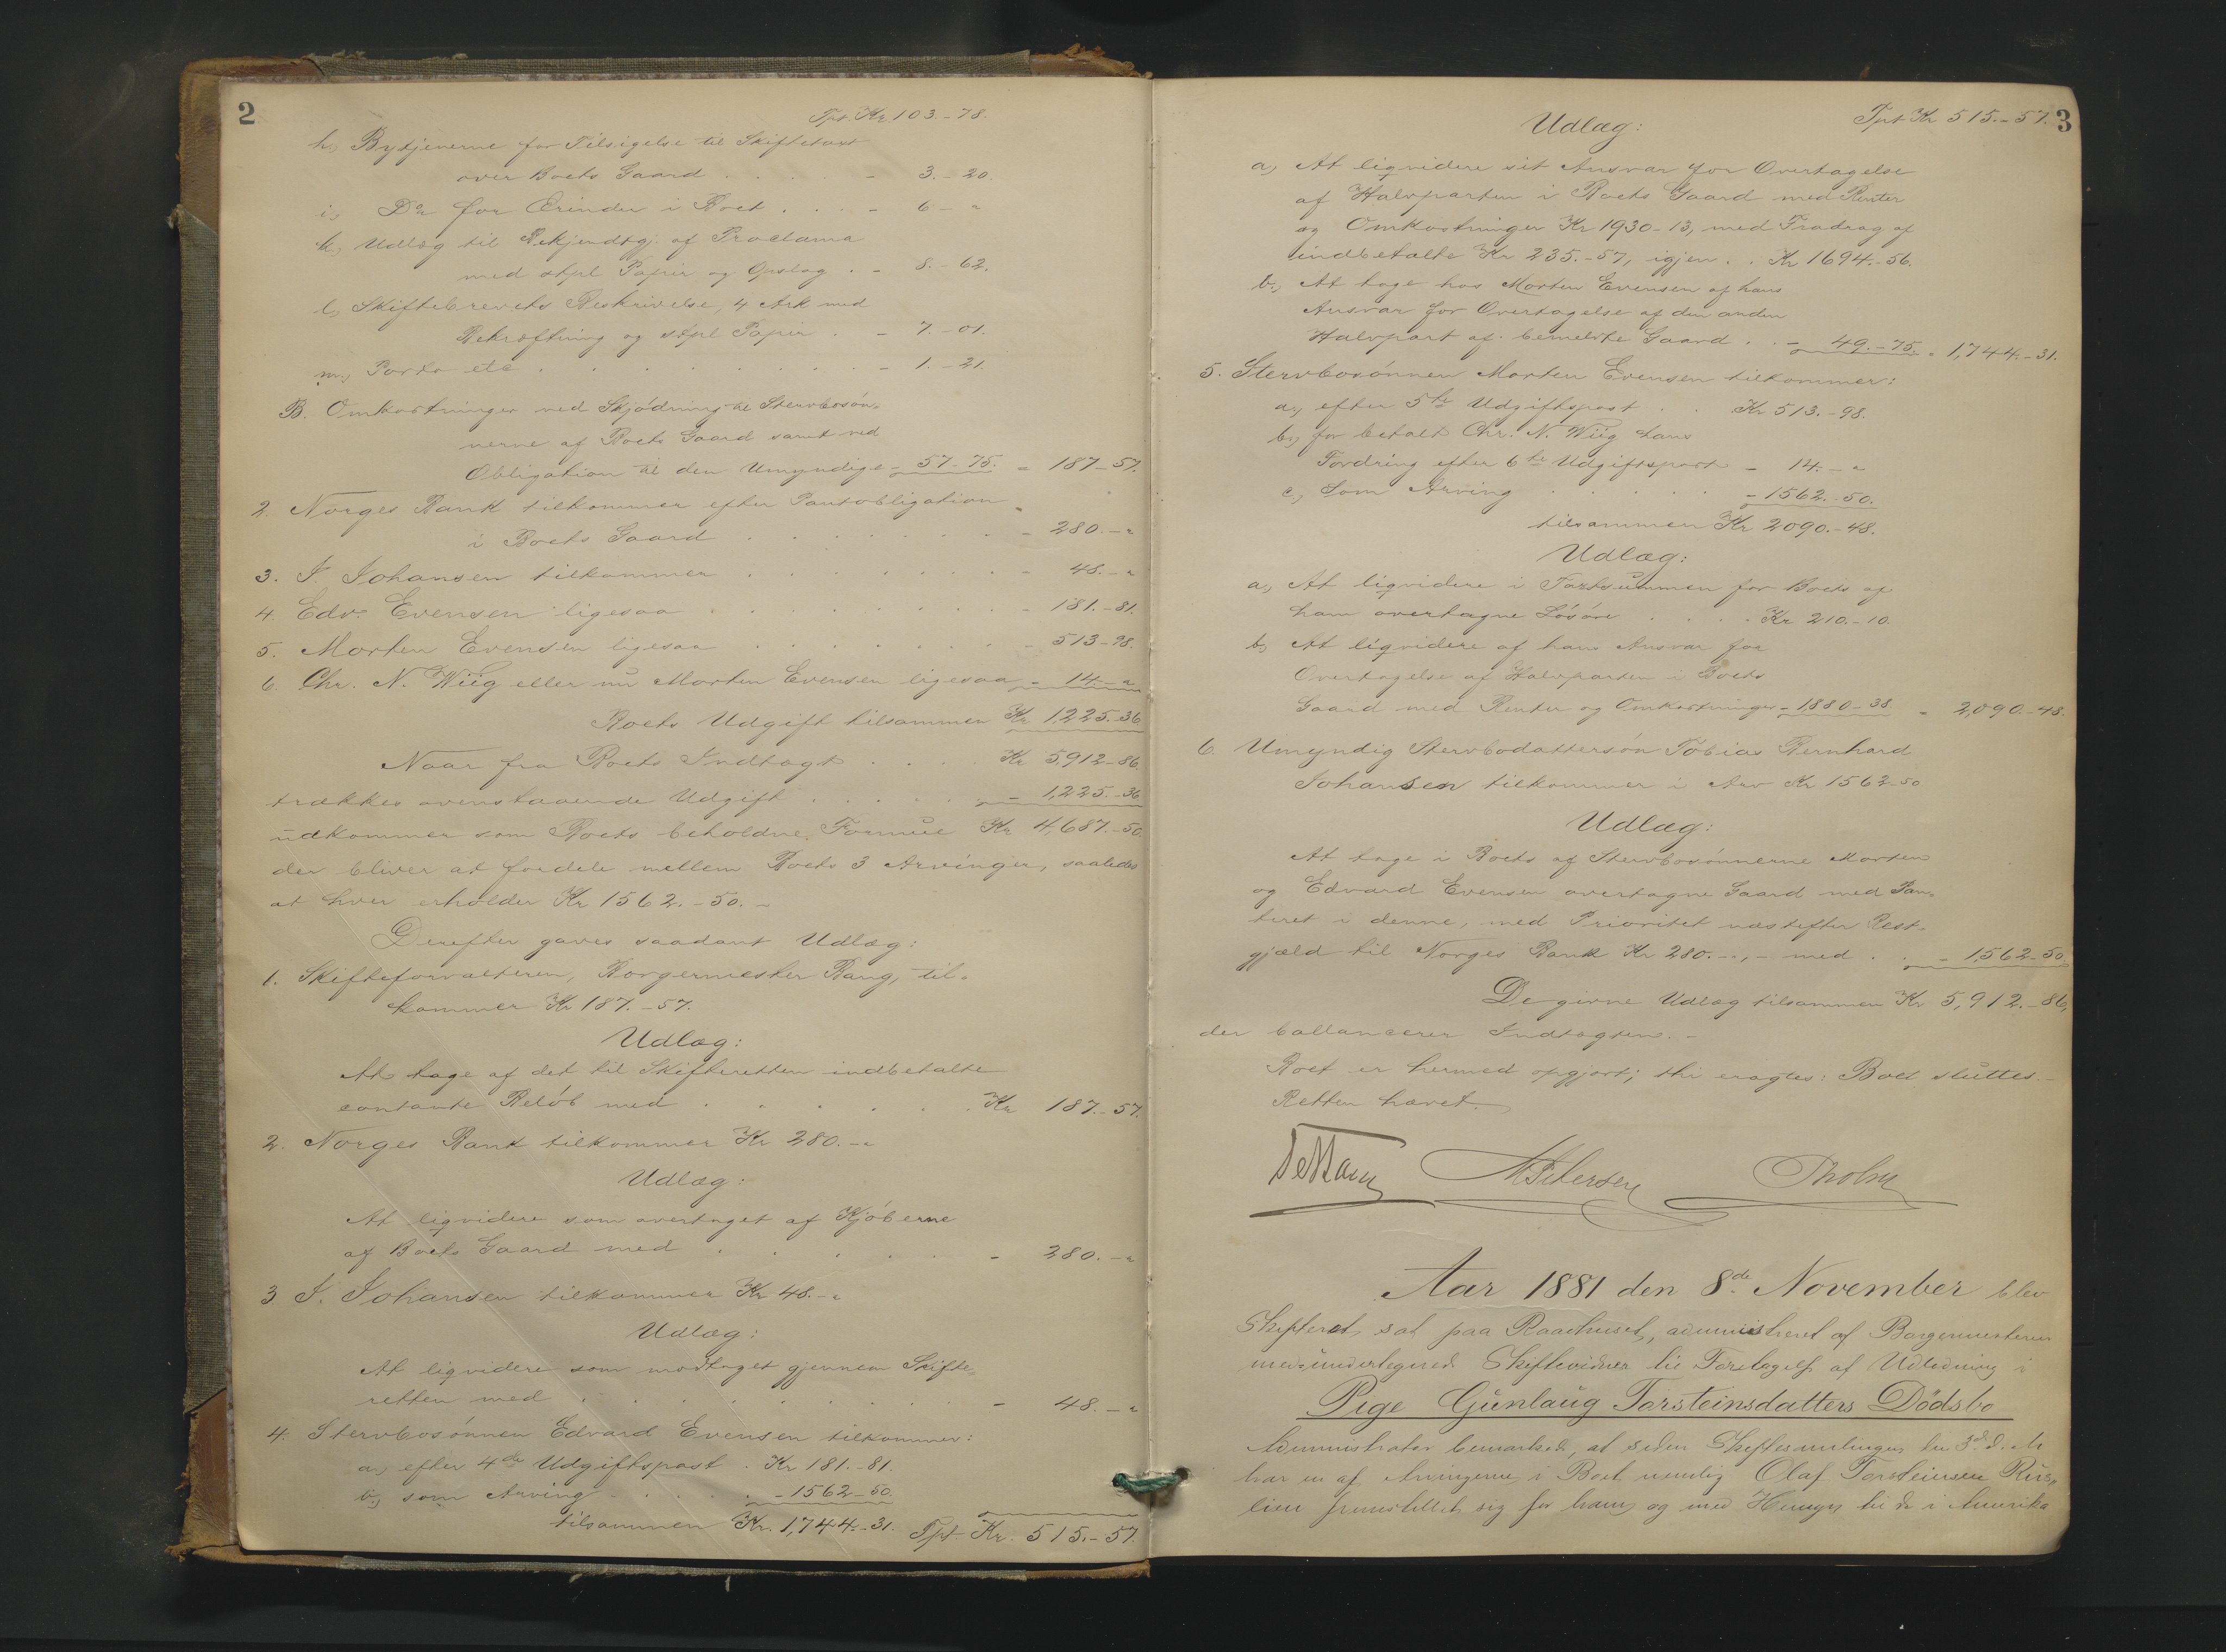 2
Tpt. Kr 103-78.
h., Bytjenerne for Tilsigelse til Skiftetaxt
over Boets Gaard . . . . . - 3.-20.
i., Do for Ærinder i Boet . . . - 6-"
k., Udlæg til Bekjendtgj. af Proclama
med stpl Papir og Opslag . - 8.-62.
l., Skiftebrevets Beskrivelse, 4 Ark med
Bekræftning og stpl Papir . - 7.-01.
m., Porto etc . . . . . . . . - 1.-21.
B. Omkostninger ved Skjødning til Stervbosøn-
nerne af Boets Gaard samt ved
Obligation til den Umyndige - 57-75. = 187-57.
2. Norges Bank tilkommer efter Pantobligation
i Boets Gaard . . . . . . . - 280.-"
3. I. Johansen tilkommer . . . . . . - 48.-"
4. Edv. Evensen ligesaa . . . . . . . - 181.-81.
5. Morten Evensen ligesaa . . . . . . - 513-98.
6. Chr. N. Wiig eller nu Morten Evensen ligesaa - 14.-"
Boets Udgift tilsammen Kr 1,225.-36
Naar fra Boets Indtægt . . . . Kr 5,912-86.
trækkes ovenstaaende Udgift . . . . . - 1,225.-36
udkommer som Boets beholdne Formue Kr 4,687.-50.
der bliver at fordele mellem Boets 3 Arvinger, saaledes
at hver erholder Kr 1562.-50.-
Derefter gaves saadant Udlæg:
1. Skifteforvalteren, Borgermester Bang, til-
kommer Kr 187.-57.
Udlæg:
At tage af det til Skifteretten indbetalte
contante Beløb med . . . . . . Kr 187.-57.
2. Norges Bank tilkommer Kr 280.-"
Udlæg:
At liqvidere som overtaget af Kjøberne
af Boets Gaard med . . . . . . - 280.-"
3 I. Johansen tilkommer Kr 48.-"
Udlæg:
At liqvidere som modtaget gjennem Skifte-
retten med . . . . . . . . . - 48.-"
4. Stervbosønnen Edvard Evensen tilkommer:
a., efter 4de Udgiftspost . Kr 181.-81.
b., som Arving . . . . . - 1562-50.
tilsammen Kr. 1,744.-31. Tpt Kr. 515.-57.
Tpt Kr 515.-57. 3
Udlæg:
a, At liqvidere sit Ansvar for Overtagelse
af Halvparten i Boets Gaard med Renter
og Omkostninger Kr 1930-13, med Fradrag af
indbetalte Kr 235.-57, igjen . . Kr 1694.-56.
b., At tage hos Morten Evensen af hans
Ansvar for Overtagelse af den anden
Halvpart af bemeldte Gaard . . - 49.-75. = 1,744.-31.
5. Stervbosønnen Morten Evensen tilkommer:
a., efter 5te Udgiftspost . . Kr 513.-98.
b., for betalt Chr. N. Wiig hans
Fordring efter 6te Udgiftspost - 14.-"
c., Som Arving . . . . . . - 1562.-50.
tilsammen Kr 2090.-48.
Udlæg:
a., At liqvidere i Taxtsummen for Boets af
ham overtagne Løsøre . . . . Kr 210.-10.
b, At liqvidere af hans Ansvar for
Overtagelse af Halvparten i Boets
Gaard med Renter og Omkostninger - 1880-38. = 2,090.-48.
6. Umyndig Stervbodattersøn Tobias Bernhard
Johansen tilkommer i Arv Kr 1562-50
Udlæg:
At tage i Boets af Stervbosønnerne Morten
og Edvard Evensen overtagne Gaard med Pan-
teret i denne, med Prioritet næstefter Rest-
gjæld til Norges Bank Kr 280.-,- med . . - 1,562-50.
De givne Udlæg tilsammen Kr 5,912.-86,
der ballancerer Indtægten.-
Boet er hermed opgjort; thi eragtes: Boet sluttes.-
Retten hævet.
Petersen Tholm
Aar 1881 den 8de November blev
Skifteret sat paa Raadhuset, administreret af Borgermesteren
med undertegnede Skiftevidner til Foretagelse af Udlodning i
Pige Gunlaug Torsteinsdatters Dødsbo
Administrator bemærkede, at siden Skiftesamlingen den 3die d. M
har en af Arvingerne i Boet nemlig Olaf Torsteinsen
fremstillet sig for ham, og med Hensyn til de i Amerika